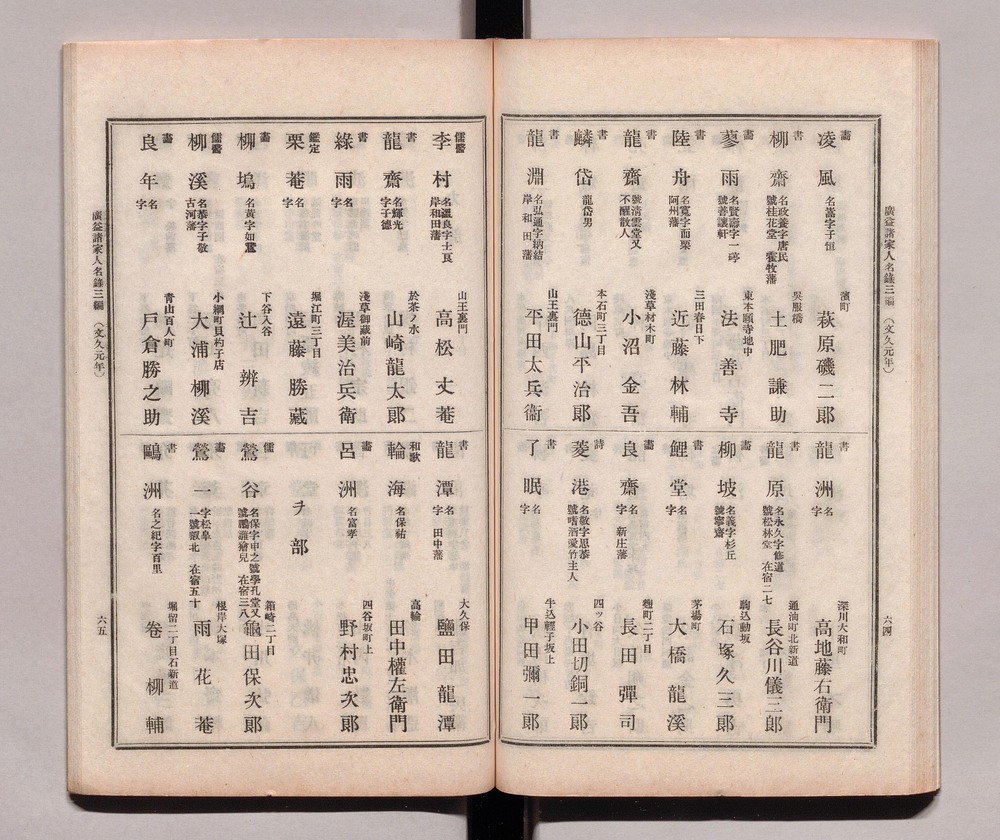 廣益諸家人名錄三編 (文久元年)
六四
畵 凌風 名嵩字子恒 濱町 萩原磯二郎
書 柳齋 名政養字唐民 號桂花堂 霍牧藩 呉服橋 土肥謙助
畵 蓼雨 名賢壽字一碕 號善讓軒 東本願寺地中 法善寺
書 陸舟 名寬字而栗 阿州藩 三田春日下 近藤林輔
書 龍齋 號淸雲堂又 不醒散人 淺草材木町 小沼金吾
書 麟岱 龍岱男 本石町三丁目 德山平治郎
書 龍淵 名弘通字納結 岸和田藩 山王裏門 平田太兵衞
書 龍洲 名 字 深川大和町 高地藤右衛門
書 龍原 名永久字修道 號松林堂 在宿二七 通油町北新道 長谷川儀三郎
畵 柳坡 名義字杉丘 號寧齋 駒込動坂 石塚久三郎
書 鯉堂 名 字 茅場町 大橋龍溪
畵 良齋 名 字 新庄藩 麹町二丁目 長田彈司
詩 菱港 名敬字思恭 號嗜酒愛竹主人 四ッ谷 小田切銅一郎
書 了眠 名 字 牛込輕子坂上 甲田彌一郎
儒醫 李村 名溫良字士良 岸和田藩 山王裏門 高松丈菴
書 龍齋 名輝光 字子德 於茶ノ水 山崎龍太郎
書 綠雨 名 字 淺草御藏前 渥美治兵衛
鑑定 栗菴 名 字 堀江町三丁目 遠藤勝藏
畵 柳塢 名黃字如鷟 下谷入谷 辻辨吉
儒醫 柳溪 名恭字子敬 古河藩 小網町貝杓子店 大浦柳溪
畵 良年 名 字 青山百人町 戶倉勝之助
書 龍潭 名 字 田中藩 大久保 鹽田龍潭
和歌 輪海 名保祐 高輪 田中權左衛門
畵 呂洲 名富孝 四谷坂町上 野村忠次郎
ヲ部
儒 鶯谷 名保字申之號學孔堂又 在宿三八 箱崎二丁目 龜田保次郎
畵 鶯一 字松皐 一號觀北 在宿五十 根岸大塚 雨花菴
書 鷗洲 名之紀字百里 堀留二丁目石新道 卷柳輔
廣益諸家人名錄三編 (文久元年)
六五